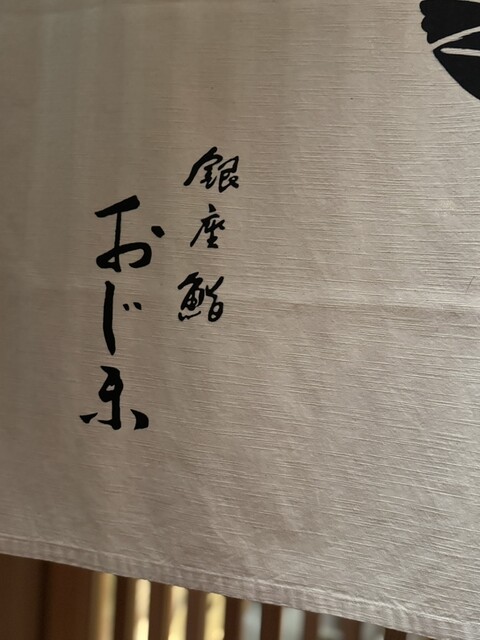 銀座 鮨
おじま